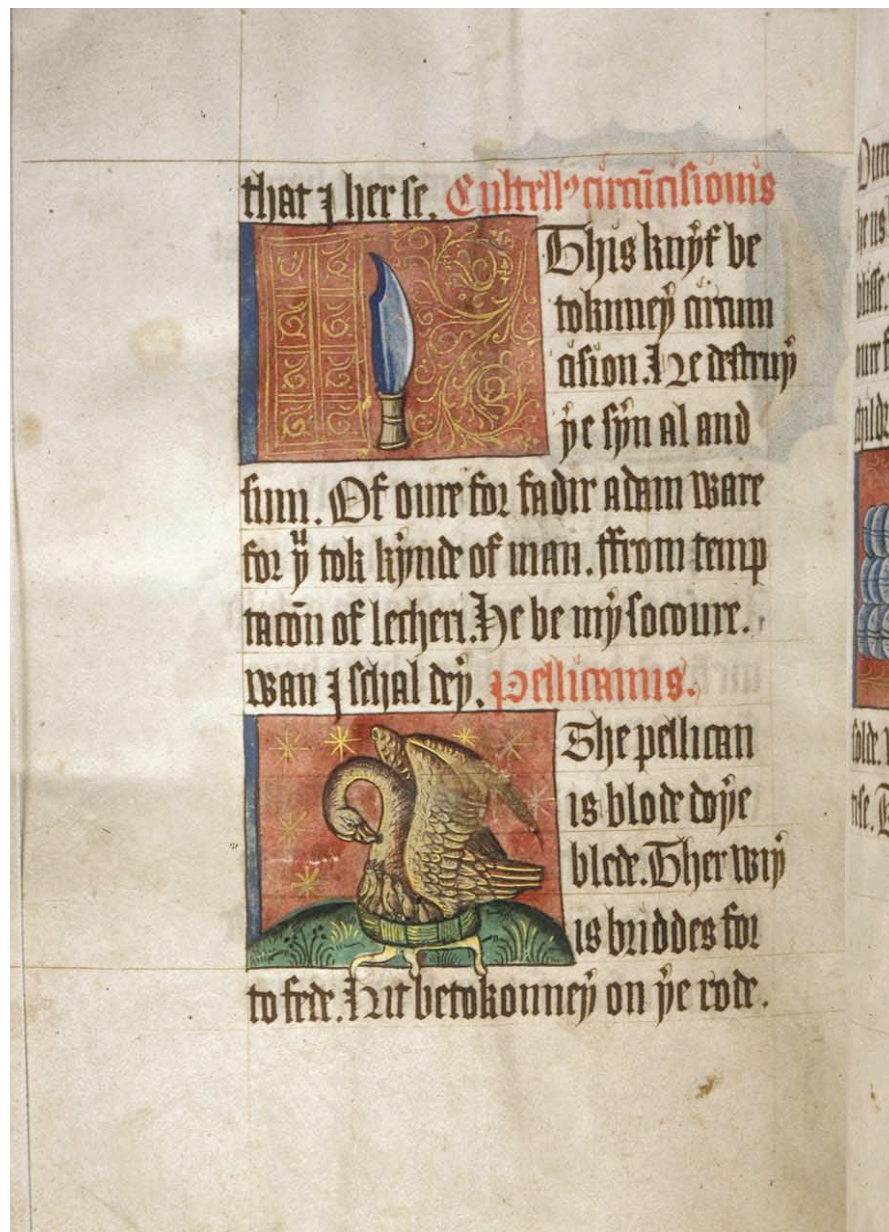 that I her se. Cultell9 circūcisionis
This knẏf be
toknneẏ circum
cision. He destruẏ
ẏe sẏn al and
sum. Of oure for fadir adam ware
for ẏu tok kẏnde of man. ffrom temp
tacōn of lecheri. He be mẏ socoure.
wan I schal deẏ. Pellicanus.
The pellican
is blode doẏe
blede. Ther wiẏ
is briddes for
to fede. Hit betokonneẏ on ẏe rode.
Oure
he us
blisse.
oure f
childe
folde.